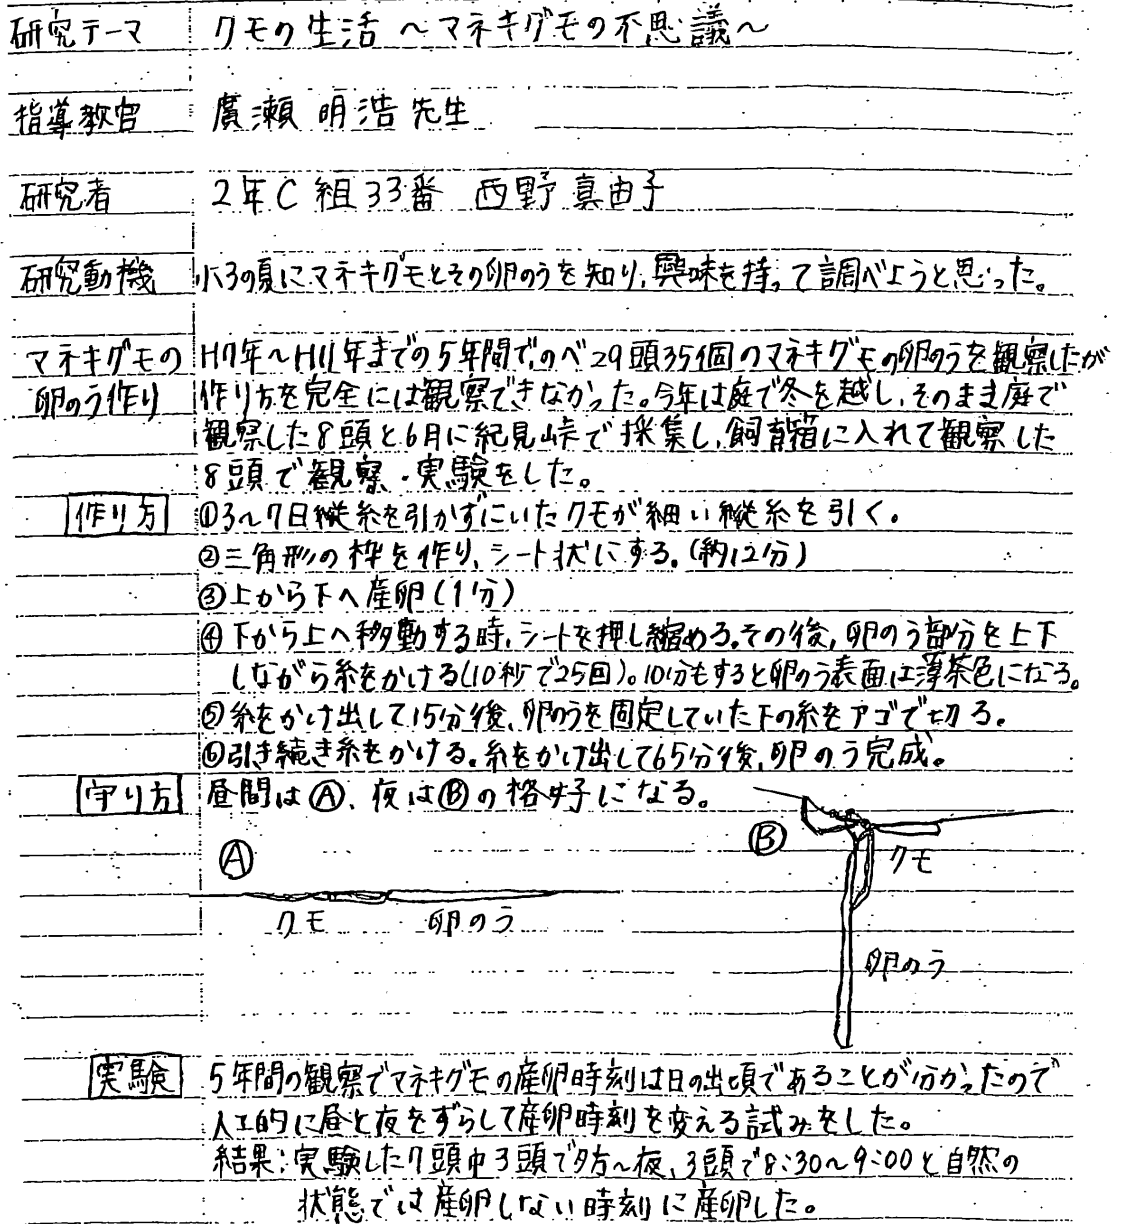 研究テーマ クモの生活 ～マネキグモの不思議～
指導教官 廣瀬 明浩先生
研究者 2年C組33番 西野真由子
研究動機 小3の夏にマネキグモとその卵のうを知り、興味を持って調べようと思った。
マネキグモの H7年～H11年までの5年間で、のべ29頭35個のマネキグモの卵のうを観察したが
卵のう作り 作り方を完全には観察できなかった。今年は庭で冬を越し、そのまま庭で
観察した8頭と6月に紀見峠で採集し、飼育箱に入れて観察した
8頭で観察・実験をした。
作り方 ①3～7日縦糸を引かずにいたクモが細い縦糸を引く。
②三角形の枠を作り、シート状にする。(約12分)
③上から下へ産卵(1分)
④下から上へ移動する時、シートを押し縮める。その後、卵のう部分を上下
しながら糸をかける(10秒で25回)。10分もすると卵のう表面は薄茶色になる。
⑤糸をかけ出して15分後、卵のうを固定していた下の糸をアゴで切る。
⑥引き続き糸をかける。糸をかけ出して65分後、卵のう完成。
守り方 昼間はⒶ、夜はⒷの格好になる。
Ⓐ
クモ 卵のう
Ⓑ
クモ
卵のう
実験 5年間の観察でマネキグモの産卵時刻は日の出頃であることが分かったので
人工的に昼と夜をずらして産卵時刻を変える試みをした。
結果:実験した7頭中3頭で夕方～夜、3頭で8:30～9:00と自然の
状態では産卵しない時刻に産卵した。